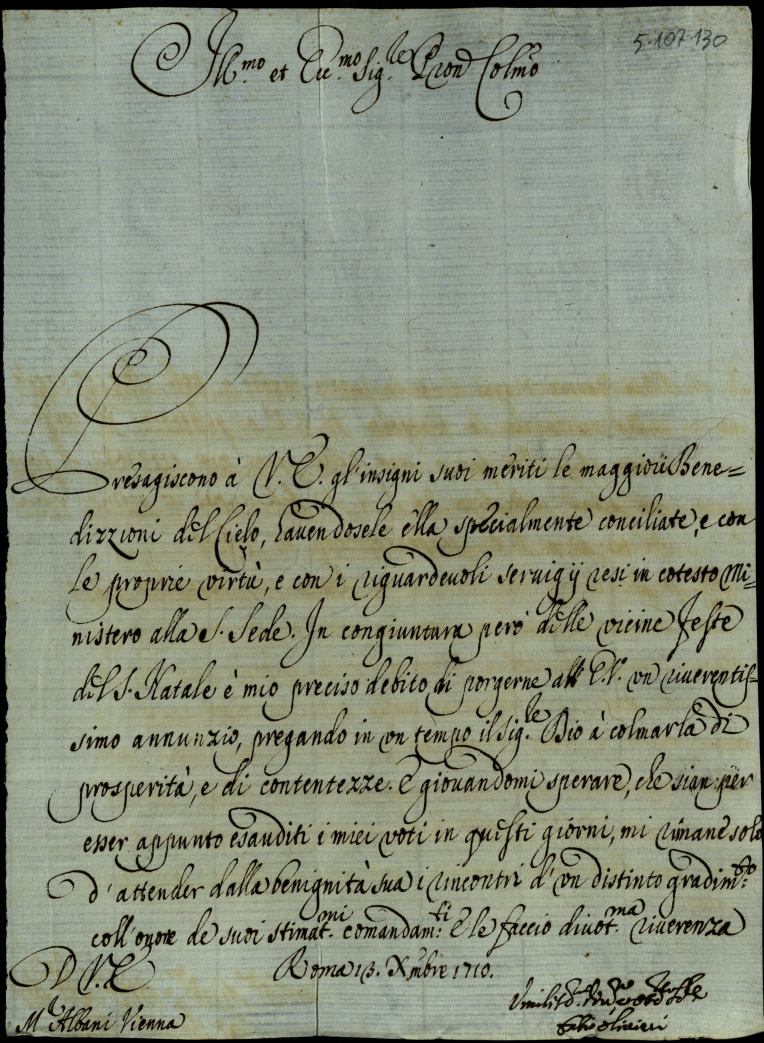 5-107-130
Ill.mo et Ecc.mo Sig.re Pron Colmo
Presagiscono à V. E. gl'insigni suoi meriti le maggiori Bene=
dizzioni del Cielo, havendosele ella specialmente conciliate, e con
le proprie virtù, e con i riguardevoli servigij resi in cotesto Mi-
nistero alla S. Sede. In congiuntura però delle vicine Feste
del S. Natale è mio preciso debito di porgerne all' E. V. vn riverentis-
simo annunzio, pregando in vn tempo il Sig.re Dio à colmarla di
prosperità, e di contentezze. E giovandomi sperare, che sian per
esser appunto esauditi i miei voti in questi giorni, mi rimane solo
d'attender dalla benignità sua i rincontri d'vn distinto gradim.to
coll'onore de suoi stimat.mi comandam.ti E le faccio divot.ma riverenza
D V. E. Roma 13. Xmbre 1710.
Mr Albani Vienna
fabio Olivieri